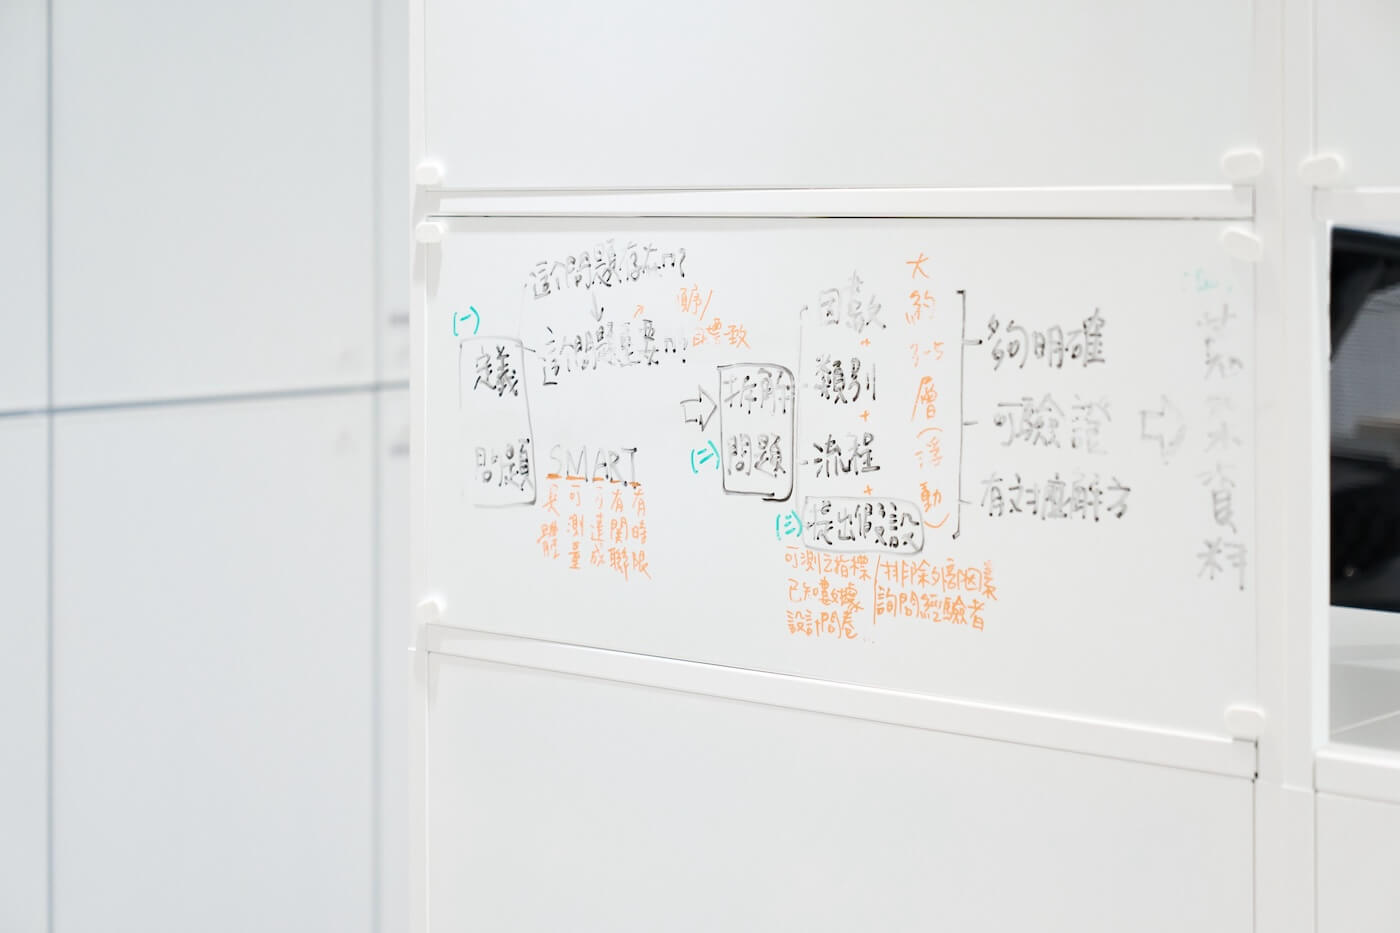 (一)
定義
問題
這個問題存在嗎?
↓
這個問題重要嗎?
目標
SMART
具體
可測量
可達成
有關聯
有時限
(二)
拆解
問題
因數
+
類別
+
流程
+
(三)
提出假設
大約3-5層(浮動)
可測之指標
已知數據
設計問卷...
排除外部因素
詢問經驗者
夠明確
可驗證
有對應解方
資料